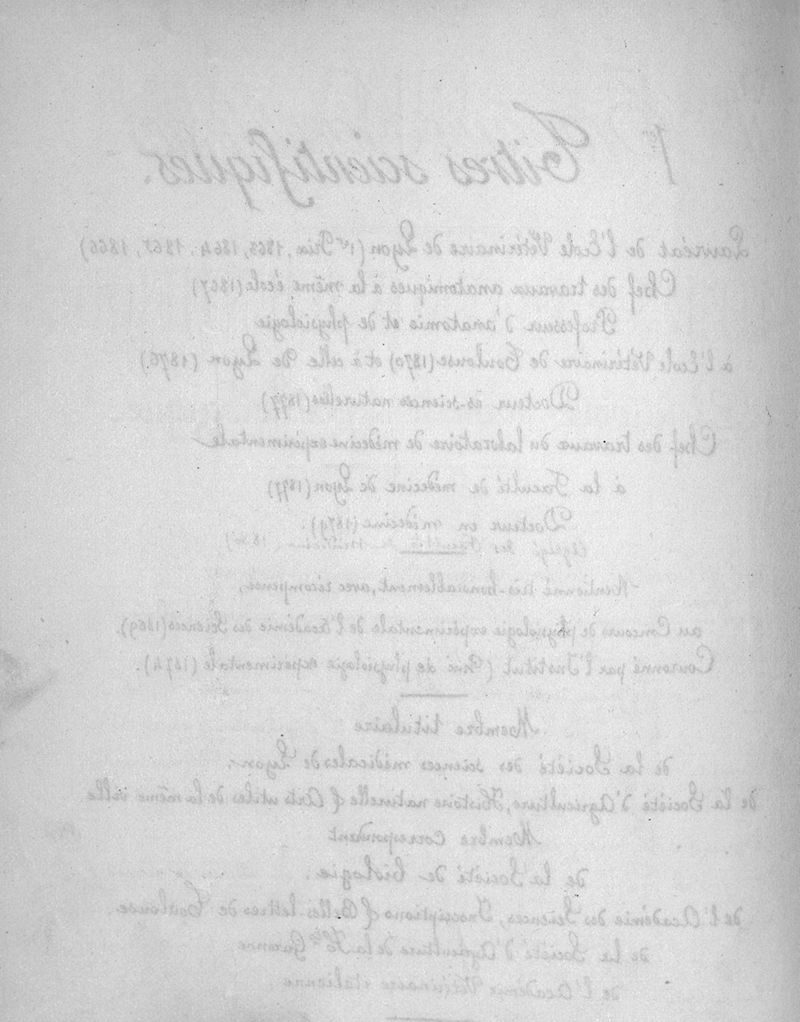 1er Titres scientifiques.
Lauréat de l'Ecole Vétérinaire de Lyon (1er Prix, 1863, 1864, 1865, 1866)
Chef des travaux anatomiques à la même école (1867)
Professeur d'anatomie et de physiologie
à l'Ecole Vétérinaire de Toulouse (1870) et à celle de Lyon (1876)
Docteur ès-sciences naturelles (1877)
Chef des travaux du laboratoire de médecine expérimentale
à la Faculté de médecine de Lyon (1877)
Docteur en médecine (1879).
Agrégé des Facultés de médecine
Mentionné très-honorablement, avec récompense,
au Concours de physiologie expérimentale de l'Académie des Sciences (1869)
Couronné par l'Institut (Prix de physiologie expérimentale (1874).
Membre titulaire
de la Société des sciences médicales de Lyon,
de la Société d'Agriculture, Histoire naturelle & Arts utiles de la même ville
Membre correspondant
de la Société de biologie.
de l'Académie des Sciences, Inscriptions & Belles-lettres de Toulouse.
de la Société d'Agriculture de la Hte Garonne
de l'Académie Vétérinaire italienne